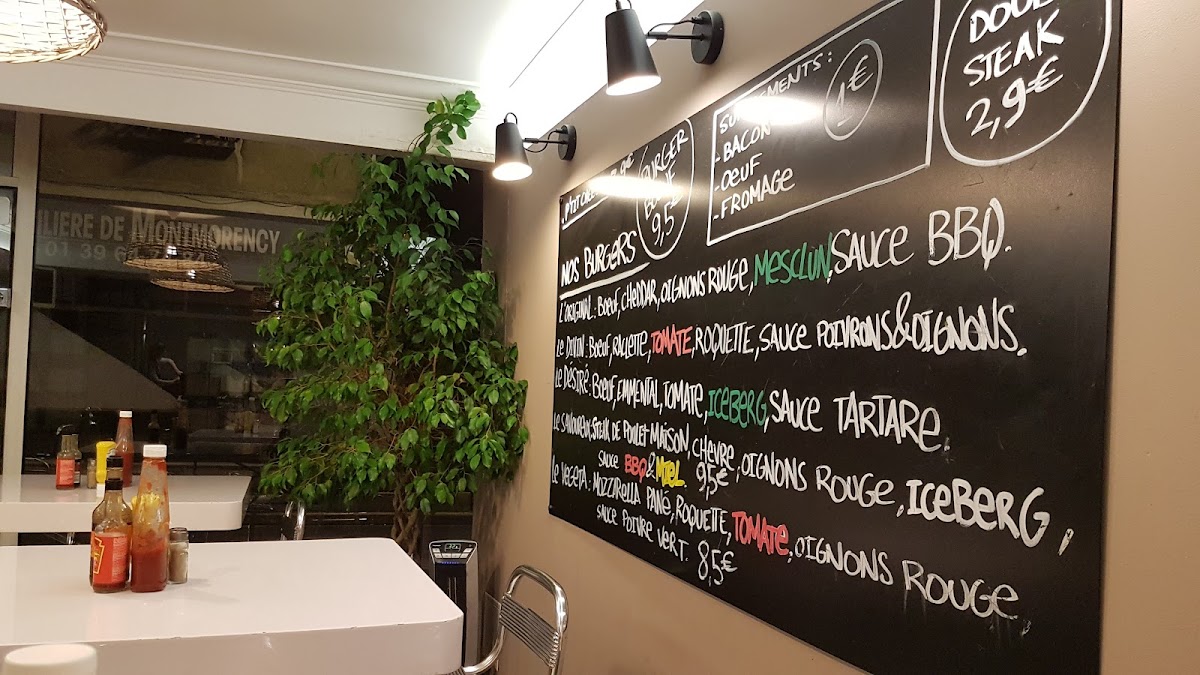 ILIERE DE MONTMORENCY
01 39 6
BURGER
9,5€
SUPPLEMENTS :
1€
- BACON
- OEUF
- FROMAGE
DOUB
STEAK
2,9€
NOS BURGERS
L'ORIGINAL : BOEUF, CHEDDAR, OIGNONS ROUGE, MESCLUN, SAUCE BBQ.
LE DIVIN : BOEUF, RACLETTE, TOMATE, ROQUETTE, SAUCE POIVRONS & OIGNONS.
LE DÉSIRÉ : BOEUF, EMMENTAL, TOMATE, ICEBERG, SAUCE TARTARE.
LE SAVOUREUX, STEAK DE POULET MAISON, CHEVRE, OIGNONS ROUGE, ICEBERG,
SAUCE BBQ & MIEL 9,5€
LE VEGETA : MOZZARELLA PANÉ, ROQUETTE, TOMATE, OIGNONS ROUGE,
SAUCE POIVRE VERT. 8,5€